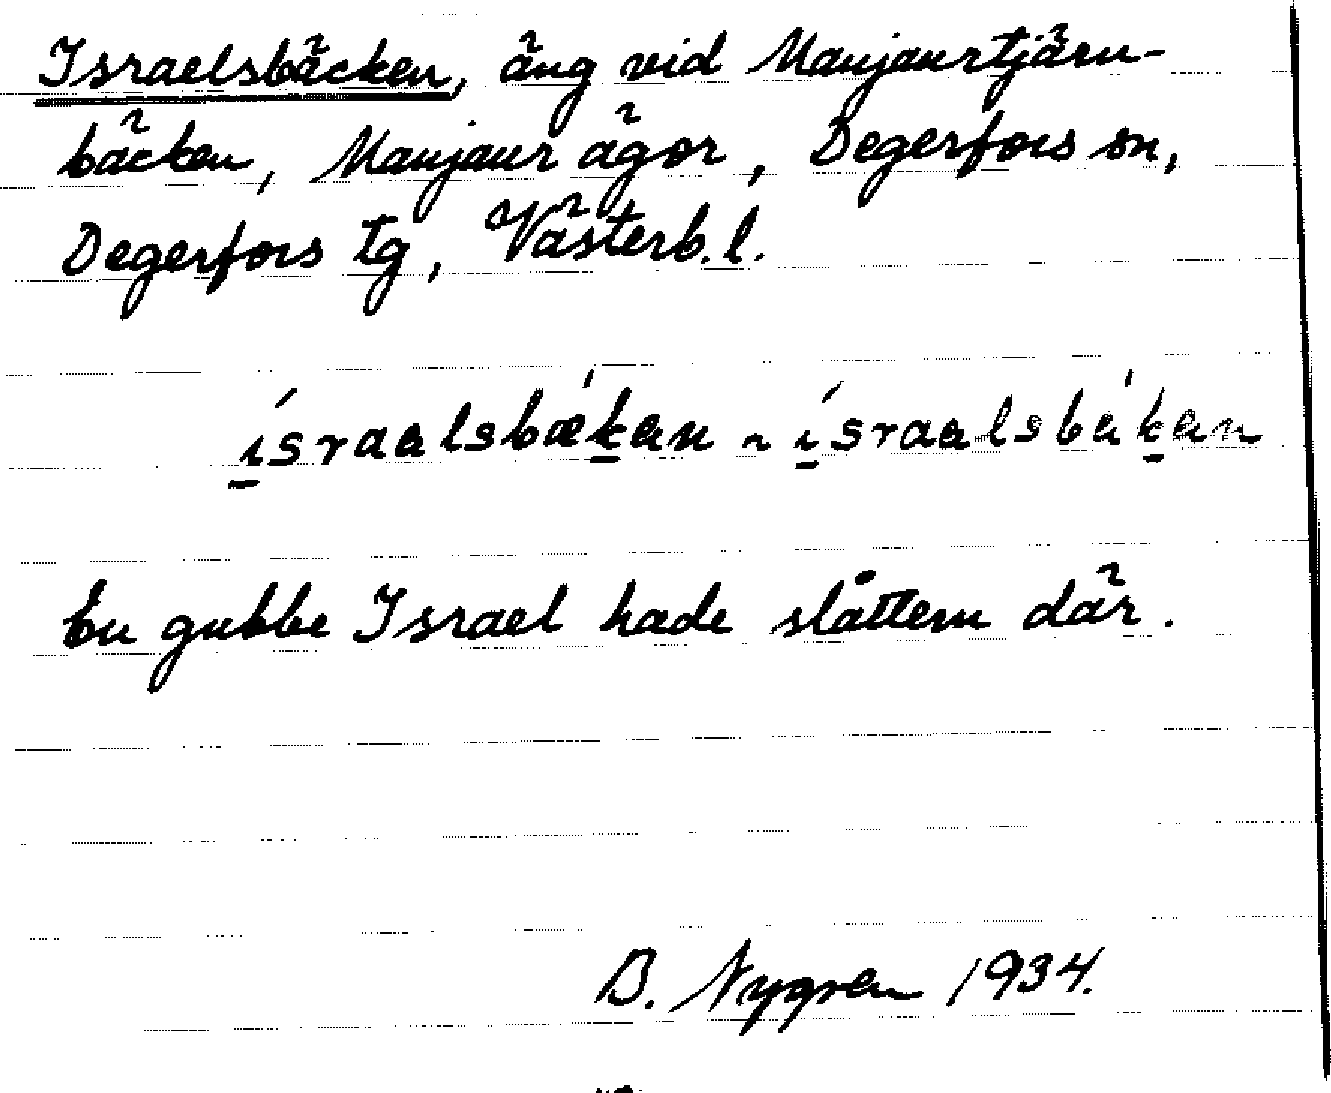 Israelsbäcken, äng vid Manjaurtjärn-
bäcken, Manjaur ägor, Degerfors sn,
Degerfors tg, Västerb.l.
ísraalsbæ̍kan ~ ísraalsba̍kan
En gubbe Israel hade slåttern där.
B. Nygren 1934.